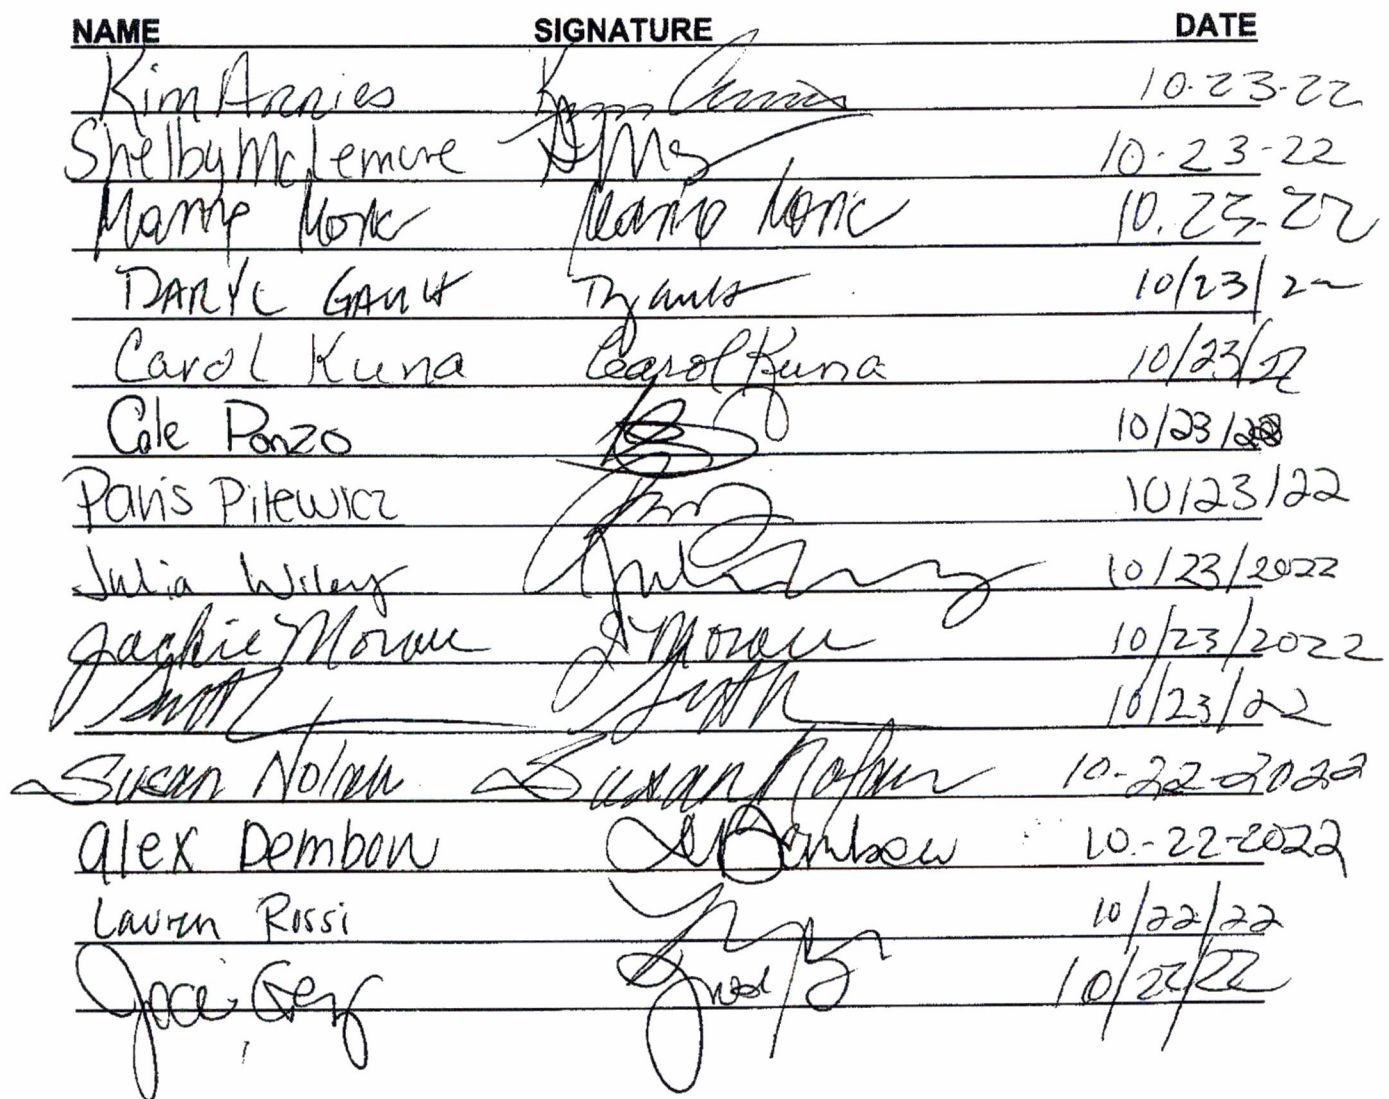 NAME SIGNATURE DATE
Kim Annies Kim Annies 10-23-22
Shelby McLemore 10-23-22
10.23-22
DARYL GAULT 10/23/22
Carol Kuna Carol Kuna 10/23/22
Cole Ponzo 10/23/22
Paris Pilewicz 10/23/22
Julia Wiley 10/23/2022
Jackie Moran J Moran 10/23/2022
10/23/22
Susan Nolan Susan Nolan 10-22-2022
Alex Dembow A Dembow 10-22-2022
Lauren Rossi 10/22/22
10/22/22